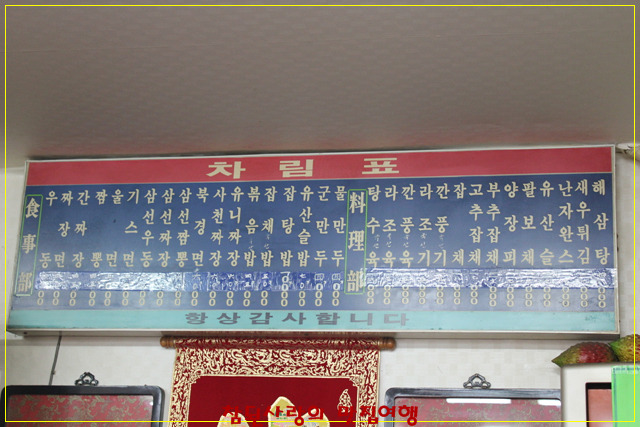 차림표
食事部
우동
짜장면
간짜장
짬뽕
울면
기스면
삼선우동
삼선짜장
삼선짬뽕
북경면
사천짜장
유니짜장
볶음밥
잡채밥
잡탕밥
유산슬밥
군만두
물만두
料理部
탕수육
라조육
깐풍육
라조기
깐풍기
잡채
고추잡채
부추잡채
양장피
팔보채
유산슬
난자완스
새우튀김
해삼탕
항상감사합니다
맛집여행